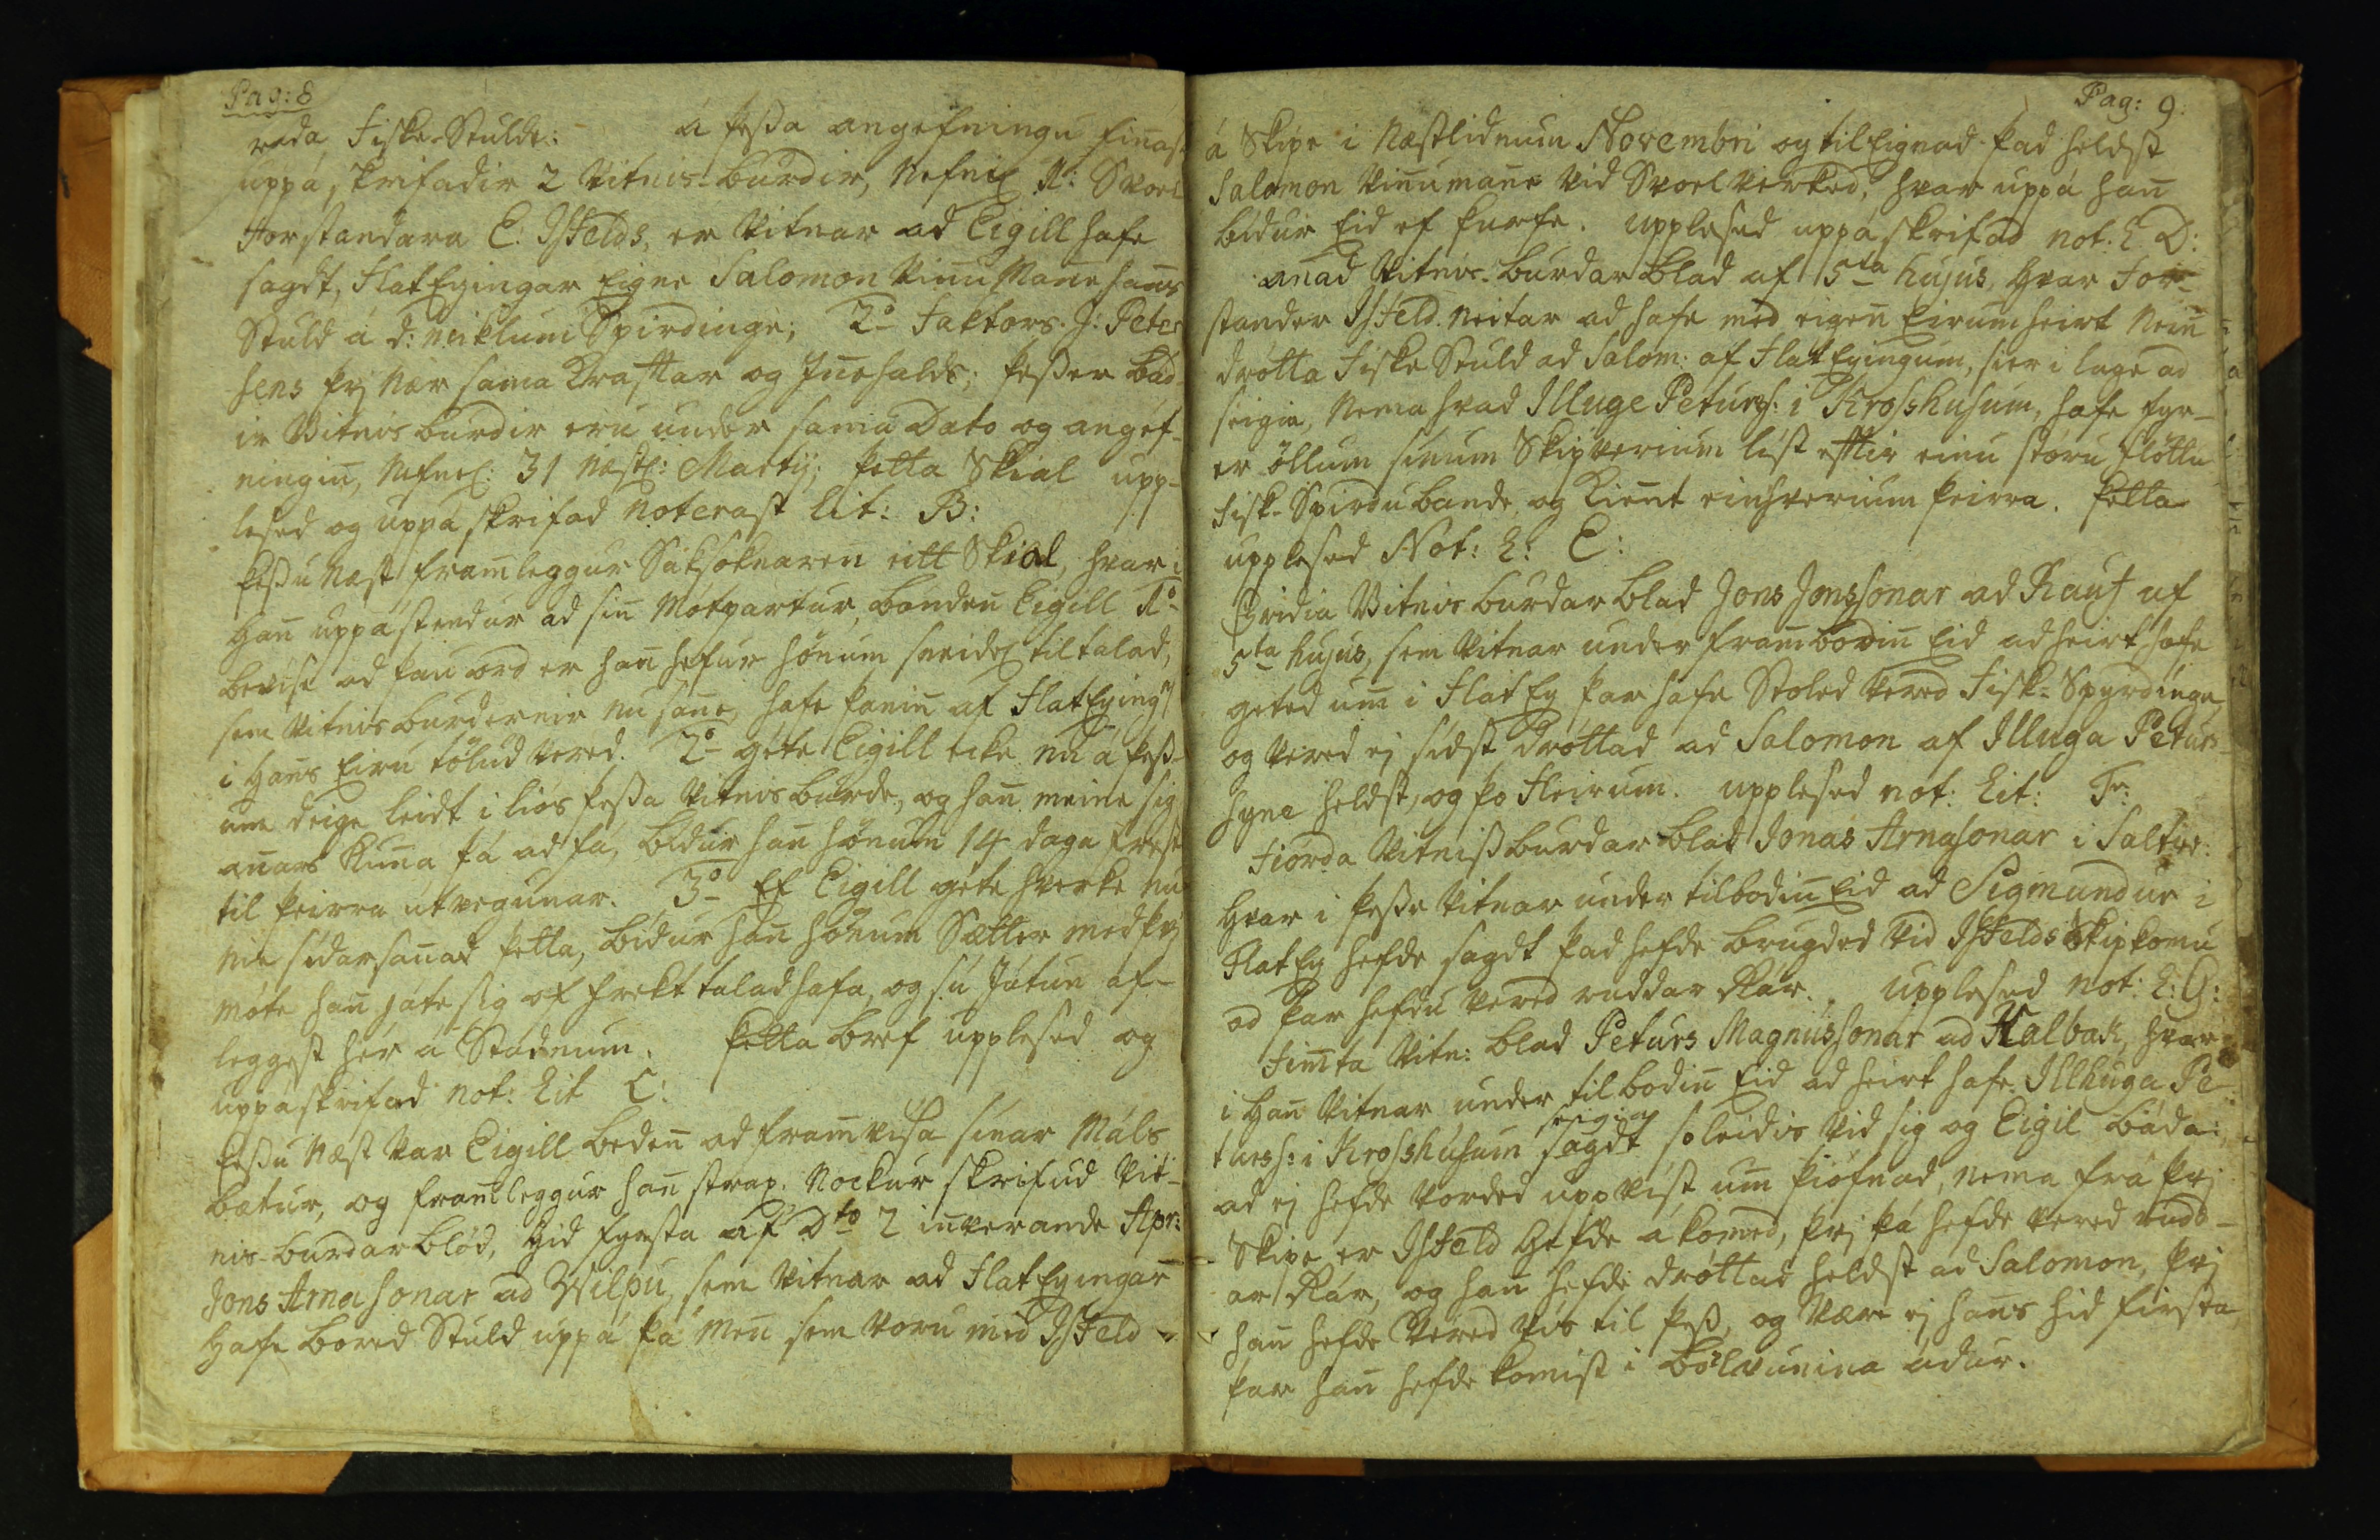 Pag: 8
rada Fiske-Stulde: á þessa angefningu finast
uppá skrifader 2 Vitnis-burder, nefnel: 1° Svoel
Forstandara E: Isfelds, er vitnar ad Eigill hafe
sagdt, Flateyingar eigne Salomon vinnumanne hans
Stuld á d: miklum Spirdinge; 2° Faktors J: Peter
sens þvj nær sama Krafttar og Innehalds; þesser bád-
ir Vitnisburdir eru under sama Dato og angef-
ningin, nefnel: 31 næstl: Martij; þetta Skial upp-
lesed og uppáskrifad noterast lit: B:
þessu næst framleggur Saksoknaren eitt Skial, hvar i
han uppástendur ad sin Mótpartur, bonden Eigill 1°
bevise ad þau ord er han hefur hönum sneidel tiltalad,
sem vitnisburderner nu sanne, hafe þanin af Flateying
i hans Eiru töłud vered. 2° géte Eigill ecke nu á þess-
um deige leidt i liós þessa vitnisburde, og han meine sig
annars kunna þá ad fá, bidur han hönum 14 daga frest
til þeirra utvegunar. 3° Ef Eigill géte hverke nu
nie sidar sannad þetta, bidur han hönum Sætter med þvj
móte han játe sig of frekt talad hafa, og sú Játun af-
leggest hér á Stadnum. þetta bref upplesed og
uppáskrifad not: Lit C:
þessu næst var Eigill beden ad framvisa sinar Máls
bætur, og framleggur han strax nockur skrifud Vit-
nis-burdarblöd, hid fyrsta af Dto 2 inverande Apr:
Jons Arnasonar ad Wilpu, sem vitnar ad Flateyingar
hafe bored Stuld uppá þá men sem voru med Isfeld
Pag: 9.
á Skipe i næstlidnum Novembri og tileignad þad heldst
Salomon vinnumanne vid Svoelverked, hvar uppá han
bidur Eid ef þurfe. upplesed uppáskrifad not. L D:
annad Vitnis-burdarblad af 5ta hujus, hvar For-
stander Isfeld neitar ad hafe med eigen Eirum heirt nein
drótta Fiske Stuld ad Salom: af Flateyingum, sier i lage ad
seigia, nema hvad Illuge Peturs: i Krosshusum, hafe fyr-
er öllum sinum Skipverium lést efftir einu stóru flöttu
Fisk-Spirdubande, og kient einhverium þeirra. þetta
upplesed Not: L: E:
þridia Vitnis burdar blad Jons Jonssonar ad Rauf af
5ta hujus, sem vitnar under frambodin Eid ad heirt hafe
geted um i Flatey þar hafe Stoled vered Fisk-Spyrdinge
og vered ej sidst dróttad ad Salomon af Illuga Peturs
syne heldst, og þo Fleirum. upplesed not: Lit: F:
Fiórda Vitnissburdar blad Jonas Arnasonar i Saltvik:
hvar i þesse vitnar under tilbodin Eid ad Sigmundur i
Flatey hefde sagdt þad hefde brugded vid Isfelds Skipkomu
ad þar hefdu vered raddar Kár. upplesed not: L: G:
Fimta Vitn: blad Peturs Magnussonar ad Kalbak, hvar
i han vitnar under tilbodin Eid ad heirt hafe Illhuga Pe-
turss: i Krosshusum sagdt seigia soleidis vid sig og Eigil báda:
ad ej hefde vorded uppvist um þiófnad, nema frá þvj
Skipe er Isfeld hefde á komed, þvj þá hefde vered rudd-
ar Kár, og han hefde dróttad heldst ad Salomon, þvj
han hefde vered vis til þess, og være ej hans hid firsta,
þar han hefde komist i bölvunina ádur.